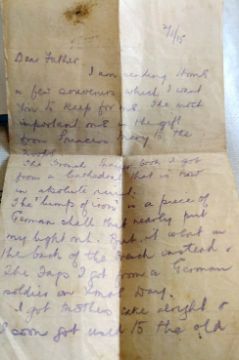 2/1/15
Dear Father,
I am sending Home
a few souvenirs which I want
you to keep for me. The most
important one is the gift
from Princess Mary to the
The French book I got
from a that is now
in absolute ruin.
The "lump of iron" is a piece of
German shell that nearly put
my light out. But it went in
the back of the trench instead &
The I got from a German
soldier on Xmas Day.
I got Mothers cake alright &
soon got used to the old